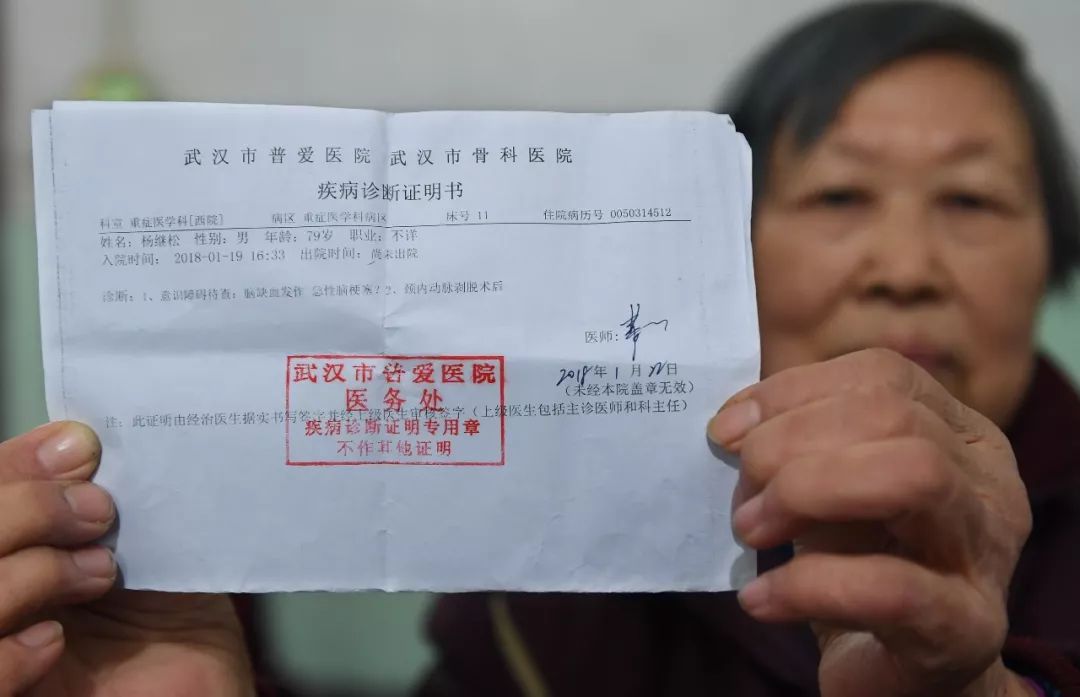 武汉市普爱医院 武汉市骨科医院
疾病诊断证明书
科室 重症医学科[西院] 病区 重症医学科病区 床号 11 住院病历号 0050314512
姓名：杨继松 性别：男 年龄：79岁 职业：不详
入院时间： 2018-01-19 16:33 出院时间：尚未出院
诊断：1、意识障碍待查：脑缺血发作 急性脑梗塞？2、颈内动脉剥脱术后
医师：
2018年1月22日
（未经本院盖章无效）
注：此证明由经治医生据实书写签字并经上级医生审核签字（上级医生包括主诊医师和科主任）
武汉市普爱医院
医务处
疾病诊断证明专用章
不作其他证明